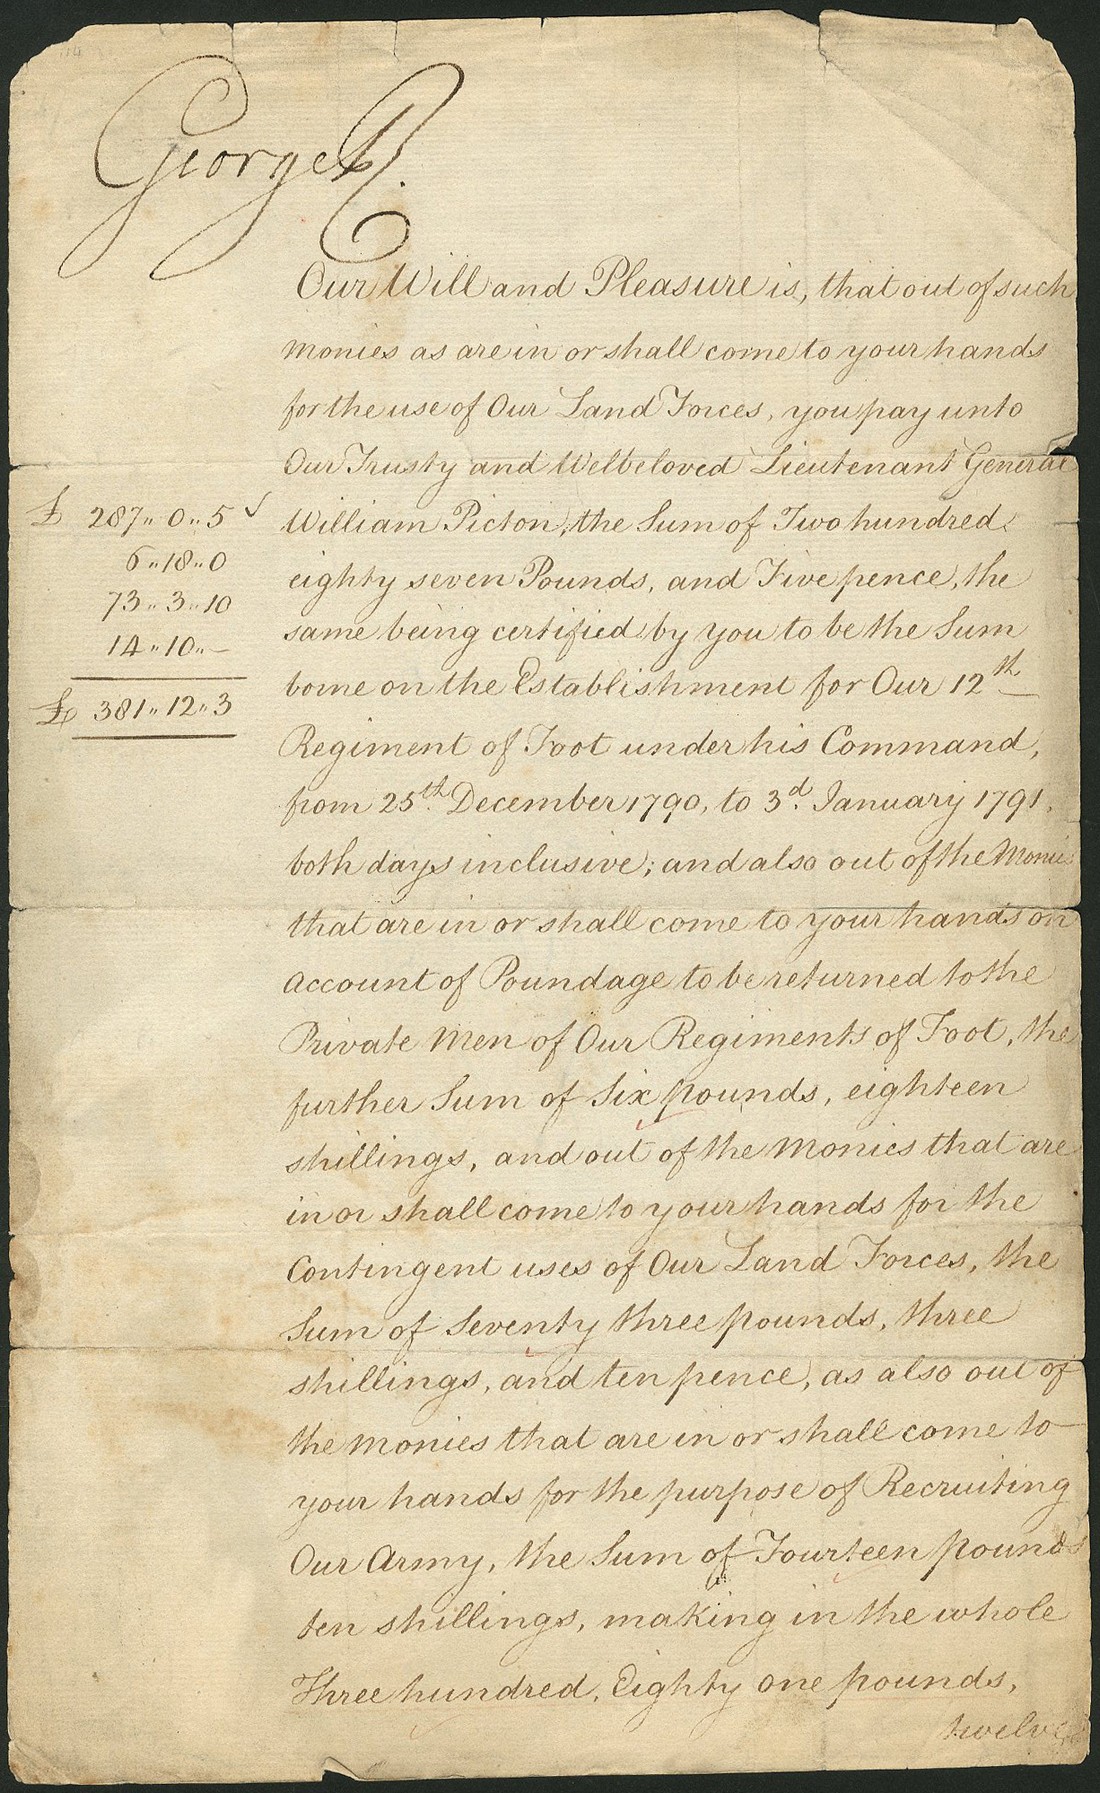 George R.
Our Will and Pleasure is, that out of such
Monies as are in or shall come to your hands
for the use of Our Land Forces, you pay unto
Our Trusty and Welbeloved Lieutenant General
£ 287,, 0,, 5 ✓
William Picton, the Sum of Two hundred
6,, 18,, 0
eighty seven Pounds, and Five pence, the
73,, 3,, 10
same being certified by you to be the Sum
14,, 10,, —
borne on the Establishment for Our 12th
£ 381,, 12,, 3
Regiment of Foot under his Command,
from 25th December 1790, to 3d January 1791,
both days inclusive; and also out of the Monies
that are in or shall come to your hands on
Account of Poundage to be returned to the
Private Men of Our Regiments of Foot, the
further Sum of Six pounds, eighteen
shillings, and out of the Monies that are
in or shall come to your hands for the
Contingent uses of Our Land Forces, the
Sum of Seventy three pounds, three
shillings, and ten pence, as also out of
the Monies that are in or shall come to
your hands for the purpose of Recruiting
Our Army, the Sum of Fourteen pounds
ten shillings, making in the whole
Three hundred, Eighty one pounds,
twelve